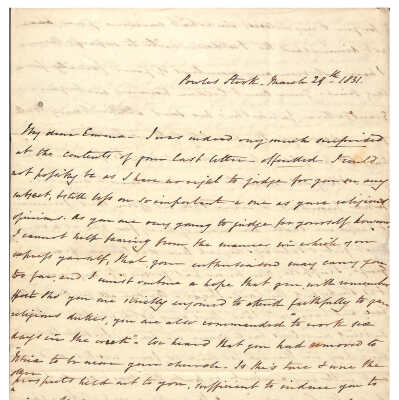 Powles Stock. March 28th 1831.
My dear Emma - I was indeed very much surprised
at the contents of your last letter - offended I could
not possibly be as I have no right to judge for you on any
subject, still less on so important a one as your religious
opinions. As you are very young to judge for yourself however
I cannot help fearing from the manner in which you
express yourself, that your enthusiasm may carry you
too far, and I must outure a hope that you will remember
that tho' you are strictly enjoined to attend faithfully to your
religious duties, you are also commanded to work six
days in the week. We heard that you had removed to
to be near your church. Is this true & were the
other
prospects held out to you, sufficient to induce you to